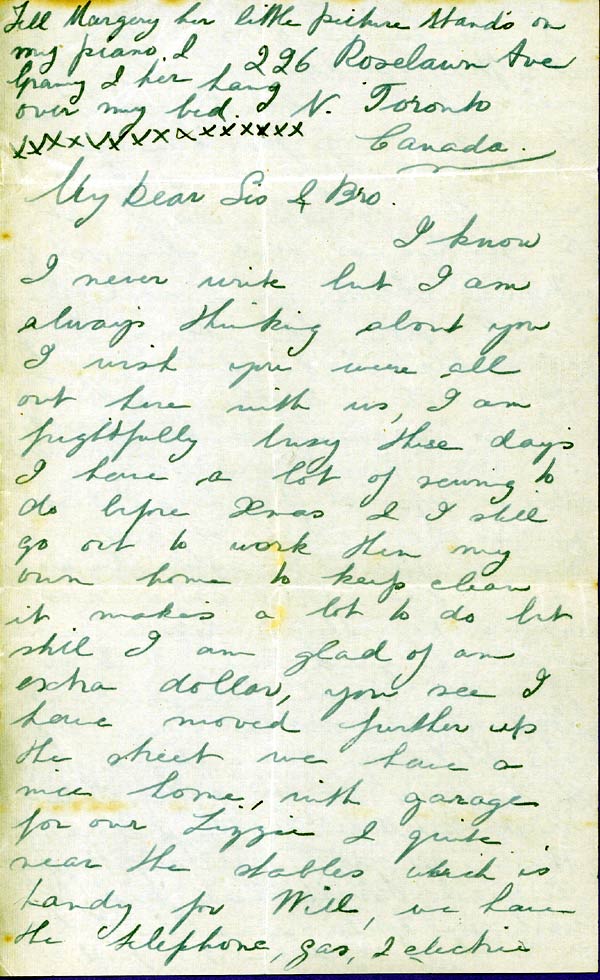 Tell Margery her little picture stands on
my piano, &
Grany & her hang
over my bed.
xxxxxxxxxxxxxxx
226 Roselawn Ave
N. Toronto
Canada.
My Dear Sis & Bro.
I know
I never write but I am
always thinking about you
I wish you were all
out here with us, I am
frightfully busy these days
I have a lot of sewing to
do before Xmas & I still
go out to work then my
own home to keep clean
it makes a lot to do but
still I am glad of an
extra dollar, you see I
have moved further up
the street we have a
nice home, with garage
for our Lizzie & quite
near the stables which is
handy for Will, we have
the telephone, gas, & electric